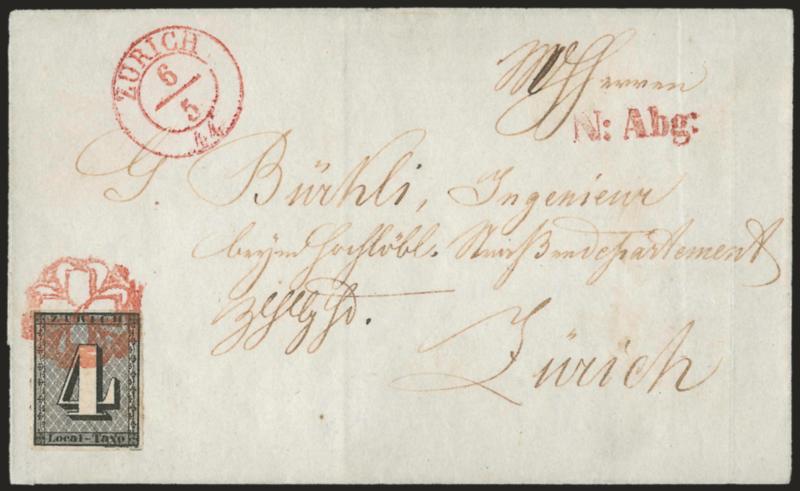 ZÜRICH
6
5
44
Herren
N: Abg:
G. Bürkli, Ingenieur
beym hochlöbl. Straßendepartement
Zürich
ZURICH
4
Local-Taxe